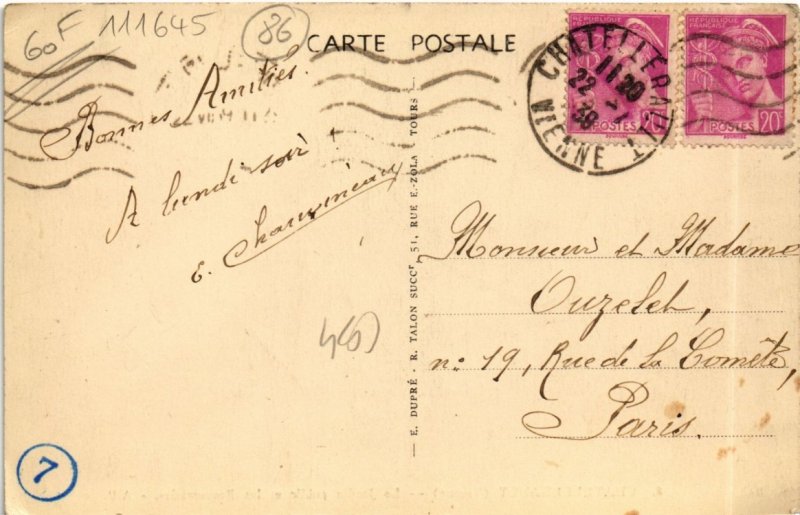 60F 111645
86
CARTE POSTALE
RÉPUBLIQUE FRANÇAISE
POSTES 20c
RÉPUBLIQUE FRANÇAISE
POSTES 20c
CHATELLERAULT
11 20
22 -1
38
VIENNE
Bonnes Amitiés.
A lundi soir !
E. Chauvineau
— E. DUPRÉ - R. TALON SUCCr, 51, RUE E.-ZOLA, TOURS —
Monsieur et Madame
Ouzelet,
n: 19, Rue de la Comète,
Paris.
7